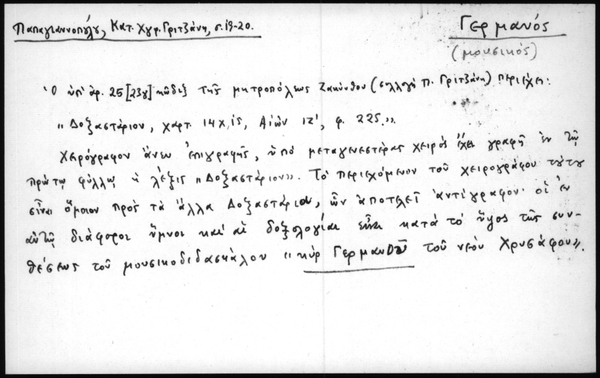 Παπαγιαννοπούλου, Κατ. Χγφ. Γριτζάνη, σ. 19-20.
Γερμανός
(μουσικός)
Ὁ ὑπ' ἀρ. 25 [23γ] κῶδιξ τῆς μητροπόλεως Ζακύνθου (συλλογὴ Π. Γριτζάνη) περιέχει:
"Δοξαστάριον, χαρτ. 14 χ. 15, Αἰών ΙΖ', φ. 225."
Χειρόγραφον ἄνευ ἐπιγραφῆς, ὑπὸ μεταγενεστέρας χειρὸς ἔχει γραφῆ ἐν τῷ
πρώτῳ φύλλῳ ἡ λέξις "Δοξαστάριον". Τὸ περιεχόμενον τοῦ χειρογράφου τούτου
εἶναι ὅμοιον πρὸς τὰ ἄλλα Δοξαστάρια, ὧν ἀποτελεῖ ἀντίγραφον· οἱ ἐν
αὐτῷ διάφοροι ὕμνοι καὶ αἱ δοξολογίαι εἶναι κατὰ τὸ ὕφος τῆς συν-
θέσεως τοῦ μουσικοδιδασκάλου "κὺρ Γερμανοῦ τοῦ νέου Χρυσάφου".